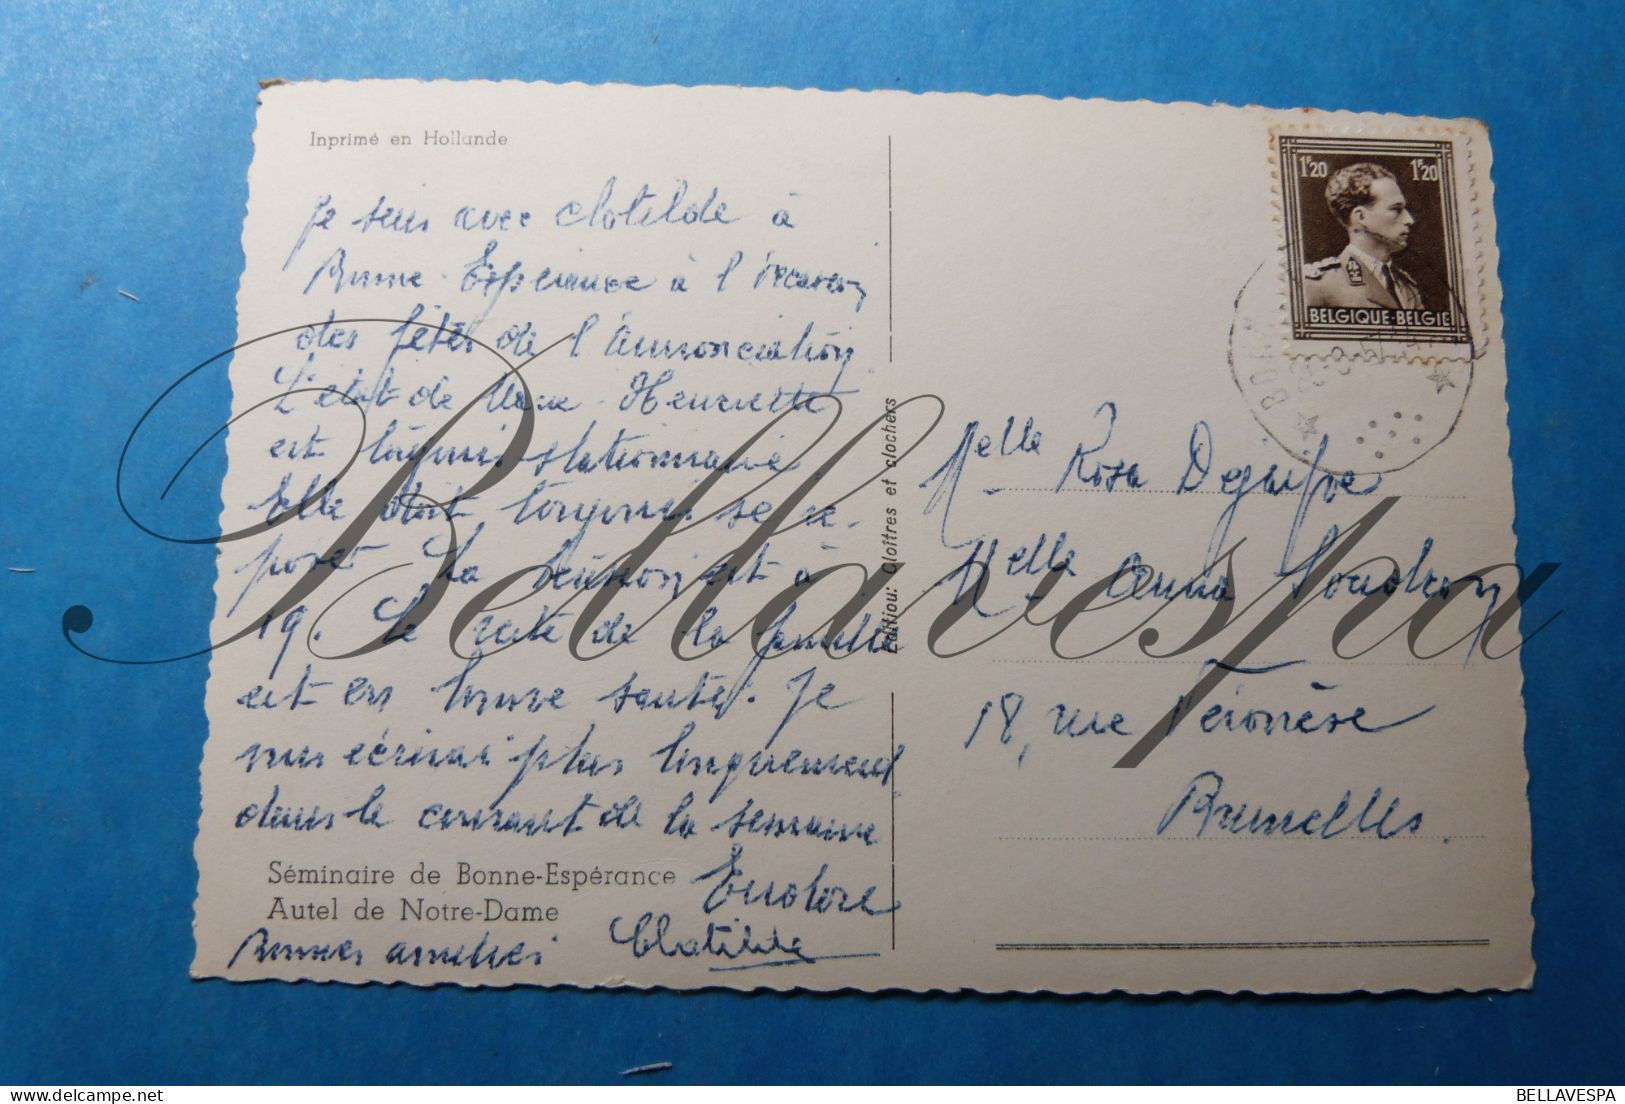 Inprimé en Hollande
Je suis avec Clotilde à
Bonne-Espérance à l'occasion
des fêtes de l'Annonciation
L'état de Mme Henriette
est toujours stationnaire
Elle doit toujours se re-
poser La tension est à
19. Le reste de la famille
est en bonne santé. Je
vous écrirai plus longuement
dans le courant de la semaine
Clotilde
Bonnes amitiés
Séminaire de Bonne-Espérance
Autel de Notre-Dame
Editjou: Cloîtres et clochers
1F20 1F20
BELGIQUE-BELGIE
BONN
Melle Rosa Degaifve
Melle Anna
18, rue Véronèse
Bruxelles.
Bellavespa
BELLAVESPA